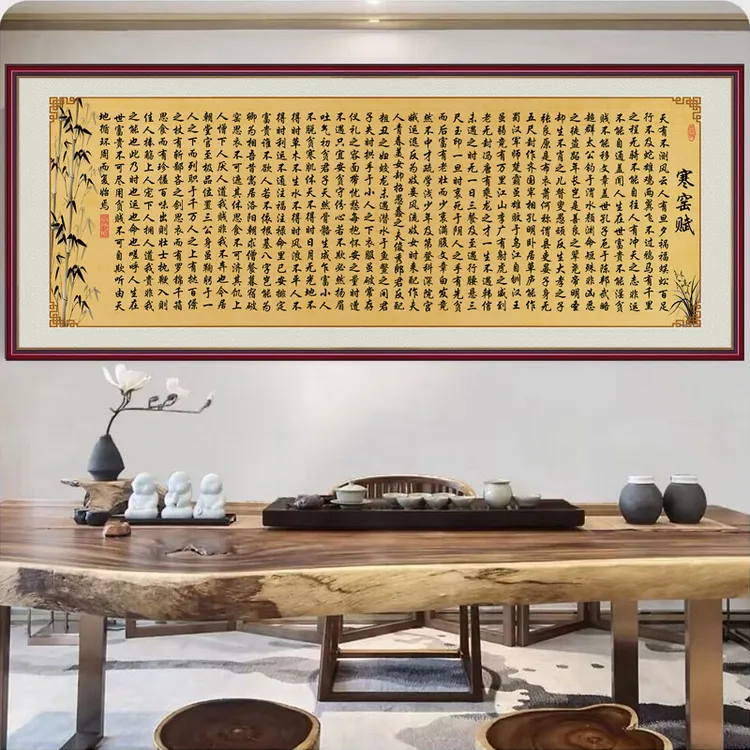 寒窑赋
天有不测风云人有旦夕祸福蜈蚣百足
行不及蛇雄鸡两翼飞不过鸦马有千里
之程无骑不能自往人有冲天之志非运
不能自通盖闻人生在世富贵不能淫贫
贱不能移文章盖世孔子厄于陈邦武略
超群太公钓于渭水颜渊命短殊非凶恶
之徒盗跖年长岂是善良之辈尧帝明圣
却生不肖之儿瞽叟愚顽反生大孝之子
张良原是布衣萧何称谓县吏晏子身无
五尺封作齐国宰相孔明卧居草庐能作
蜀汉军师楚霸虽雄败于乌江自刎汉王
虽弱竟有万里江山李广有射虎之威到
老无封冯唐有乘龙之才一生不遇韩信
未遇之时无一日三餐及至遇行腰悬三
尺玉印一旦时衰死于阴人之手有先贫
而后富有老壮而少衰满腹文章白发竟
然不中才疏学浅少年及第登科深院宫
娥运退反为妓妾风流妓女时来配作夫
人青春美女却招愚蠢之夫俊秀郎君反配
粗丑之妇蛟龙未遇潜水于鱼鳖之间君
子失时拱手于小人之下衣服虽破常存
仪礼之容面带忧愁每抱怀安之量时遭
不遇只宜安贫守份心若不欺必然扬眉
吐气初贫君子天然骨骼生成乍富小人
不脱贫寒肌体天不得时日月无光地不
得时草木不生水不得时风浪不平人不
得时利运不通注福注禄命里已安排定
富贵谁不欲人若不依根基八字岂能为
卿为相吾昔寓居洛阳朝求僧餐暮宿破
窑思衣不可遮其体思食不可济其饥上
人憎下人厌人道我贱非我不弃也今居
朝堂官至极品位置三公身虽鞠躬于一
人之下而列职于千万人之上有挞百僚
之杖有斩鄙吝之剑思衣而有罗锦千箱
思食而有珍馐百味出则壮士执鞭入则
佳人捧觞上人宠下人拥人道我贵非我
之能也此乃时也运也命也嗟呼人生在
世富贵不可尽用贫贱不可自欺听由天
地循环周而复始焉